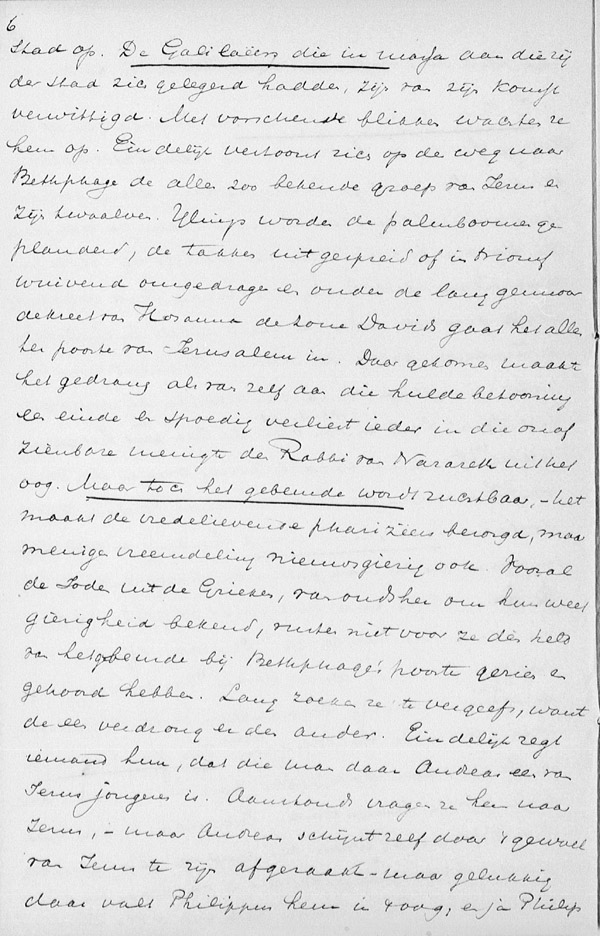 6
stad op. De Galileërs die in massa aan die zij
der stad zich gelegerd hadden, zijn van zijn komst
verwittigd. Met vorschende blikken wachten ze
hem op. Eindelijk vertoont zich op de weg naar
Bethphage de alles zoo bekende groep van Jezus en
zijn twaalven. Ylings worden de palmboomen ge
planderd, de takken uitgespreid of in triomf
wuivend omgedragen en onder de lang gemoor
dekreet van Hosanna de zone Davids gaat het alles
ter poorte van Jerusalem in. Daar gekomen maakt
het gedrang als van zelf aan die hulde betooning
een einde en spoedig verliest ieder in die onaf
zienbare menigte den Rabbi van Nazareth uit het
oog. Maar toch het gebeurde wordt ruchtbaar, – het
maakt de vredelievende pharizëers bezorgd, maar
menigen vreemdeling nieuwsgierig ook. Vooral
de Joden uit de Grieken, van oudsher om hun weet
gierigheid bekend, rusten niet voor ze dën held
van het gebeurde bij Bethphage's poorte gezien en
gehoord hebben. Lang zoeken ze te vergeefs, want
de een verdrong en den ander. Eindelijk zegt
iemand hun, dat die man daar Andreas een van
Jezus jongeren is. Aanstonds vragen ze hem naar
Jezus, – maar Andreas schijnt zelf door 't gewoel
van Jezus te zijn afgeraakt – maar gelukkig
daar valt Philippus hem in 't oog, en ja Philip